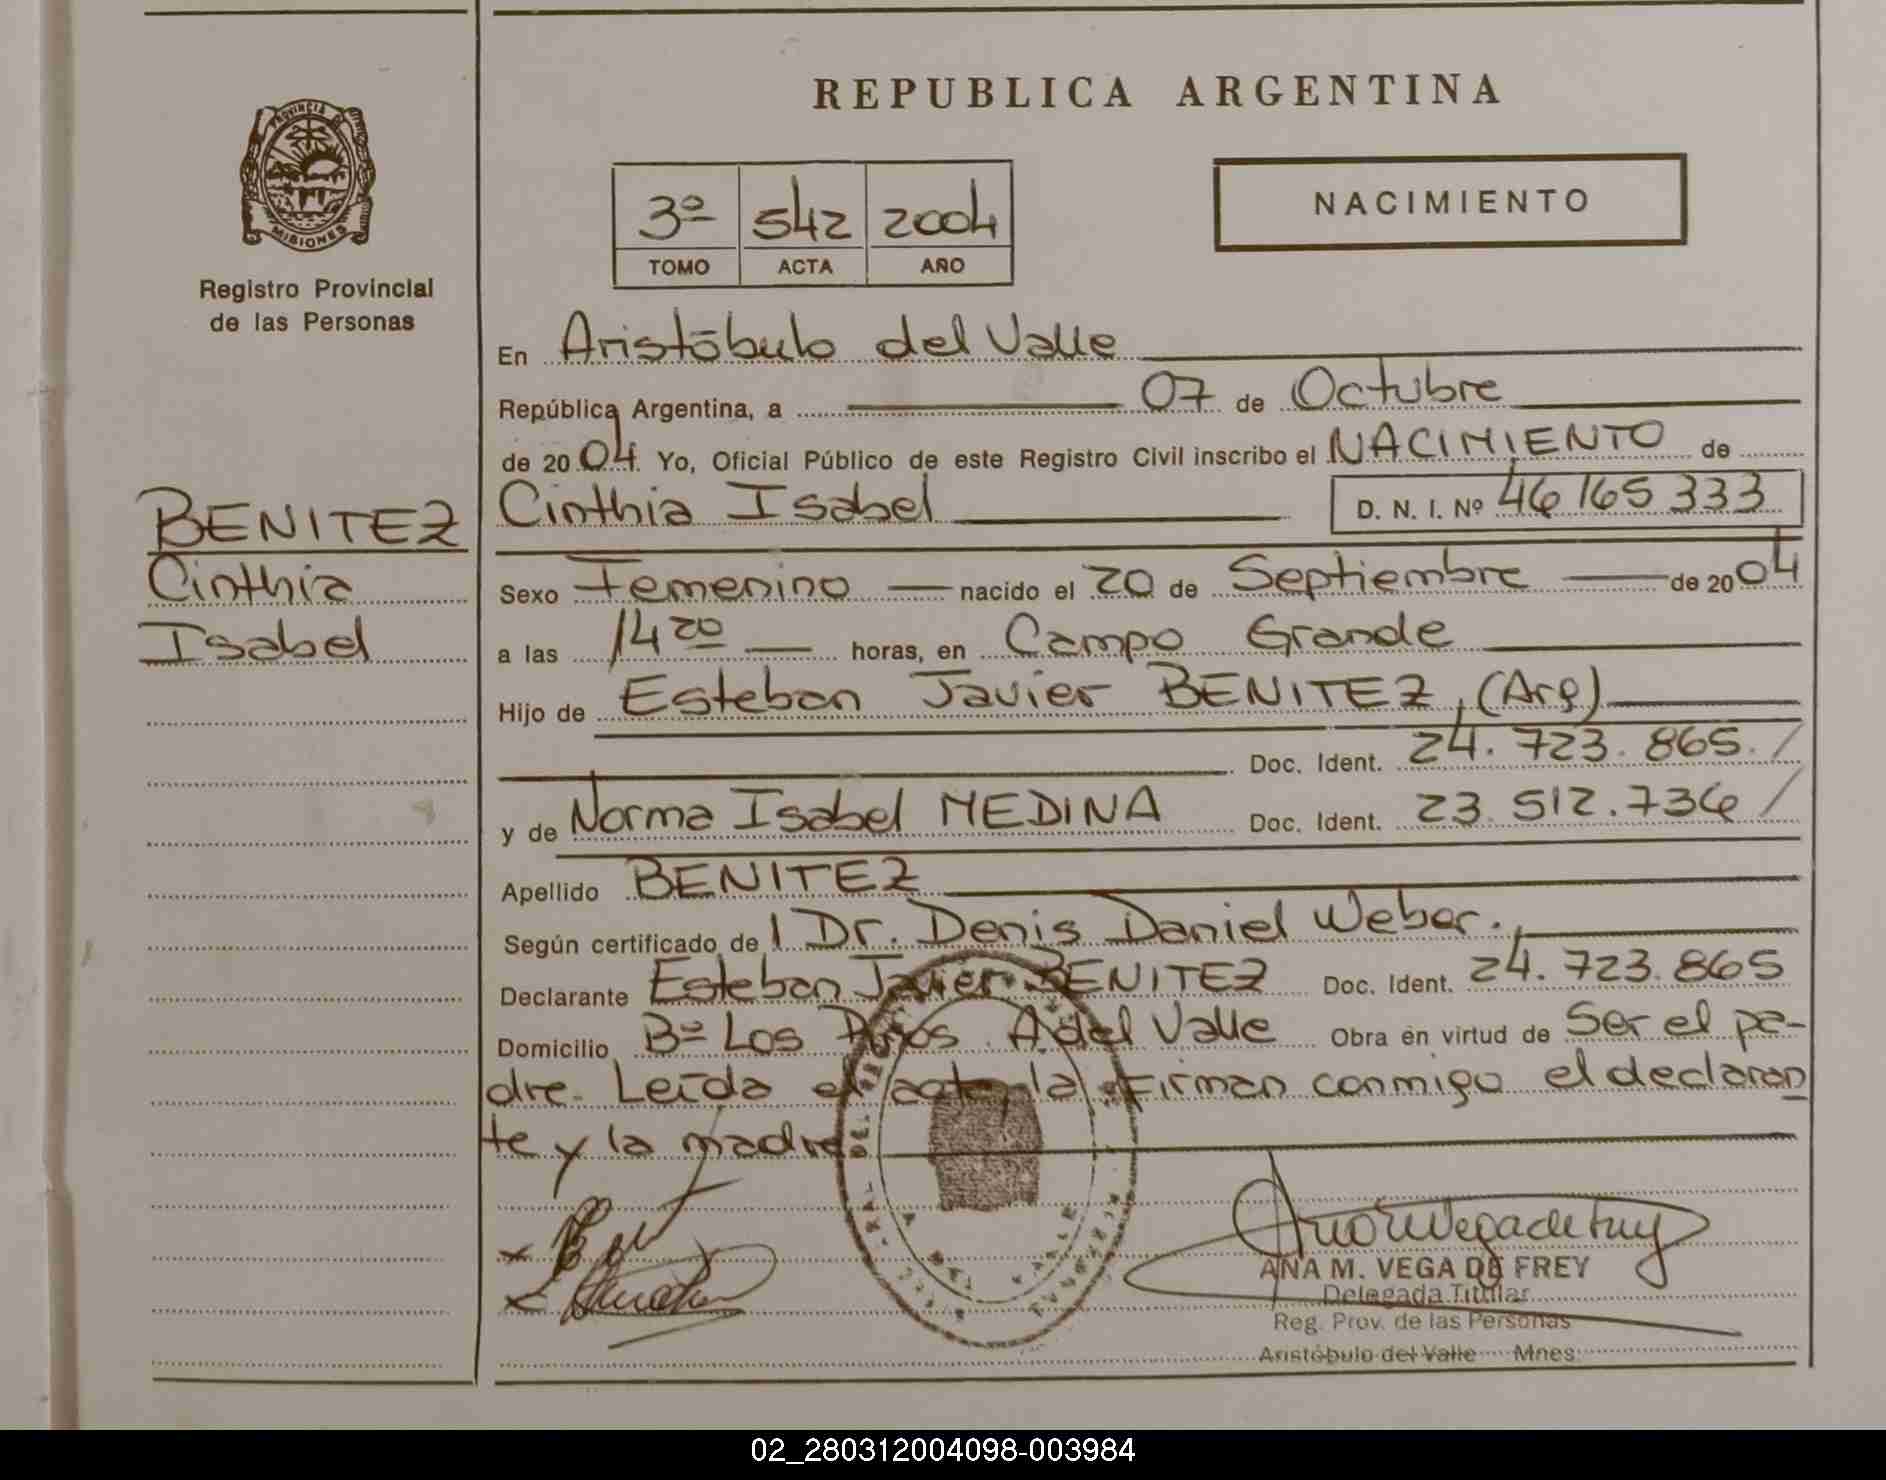 REPUBLICA ARGENTINA
PROVINCIA DE MISIONES
Registro Provincial
de las Personas
3º 542 2004
TOMO ACTA AÑO
NACIMIENTO
En Aristóbulo del Valle
República Argentina, a 07 de Octubre
de 2004. Yo, Oficial Público de este Registro Civil inscribo el NACIMIENTO de
BENITEZ
Cinthia
Isabel
Cinthia Isabel D. N. I. Nº 46 165 333
Sexo Femenino nacido el 20 de Septiembre de 2004
a las 14 20 horas, en Campo Grande
Hijo de Esteban Javier BENITEZ, (Arg)
Doc. Ident. 24.723.865./
y de Norma Isabel MEDINA Doc. Ident. 23.512.736/
Apellido BENITEZ
Según certificado de l Dr. Denis Daniel Weber.
Declarante Esteban Javier BENITEZ Doc. Ident. 24.723.865
Domicilio Bº Los Pinos A. del Valle Obra en virtud de Ser el pa-
dre. Leída el acta, la firman conmigo el declaran
te y la madre
ANA M. VEGA DE FREY
Delegada Titular
Reg. Prov. de las Personas
Aristóbulo del Valle Mnes.
02_280312004098-003984